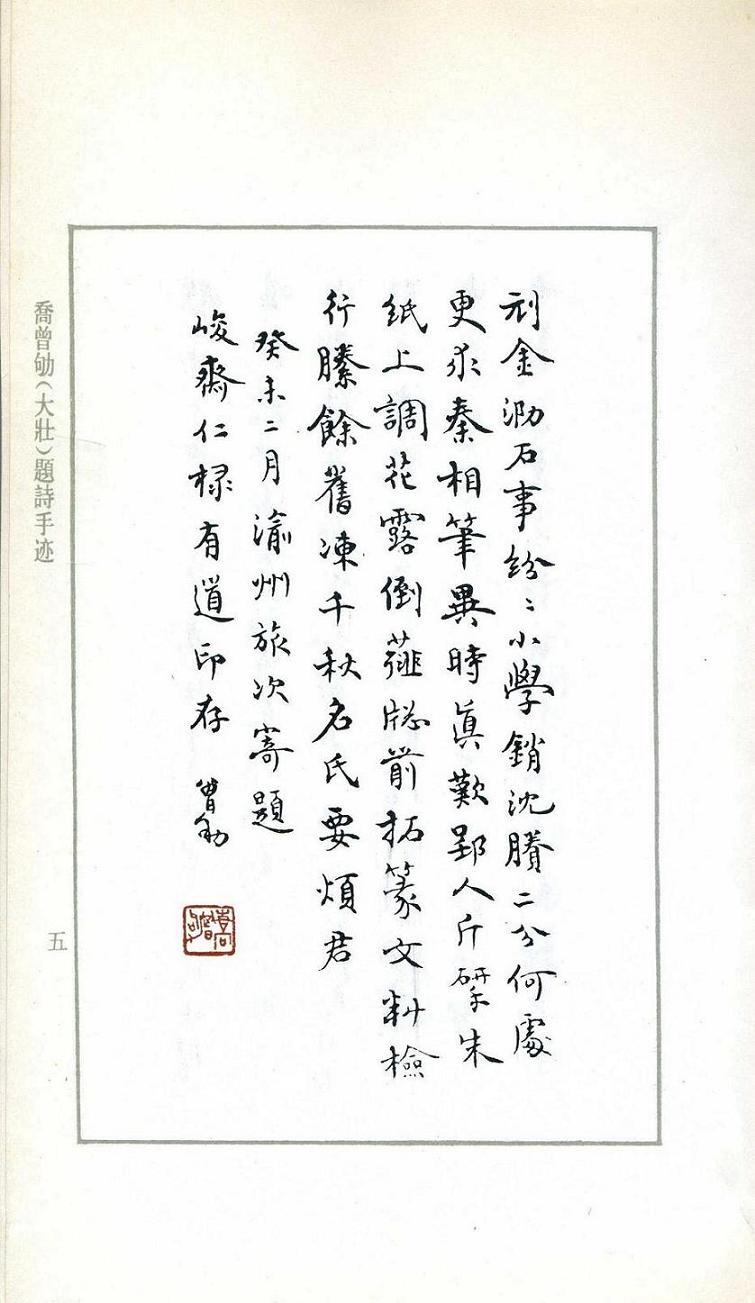 刓金泐石事紛〻小學銷沈賸二分何處
更求秦相筆異時眞歎郢人斤揅朱
紙上調花露倒薤牕前拓篆文料檢
行縢餘舊凍千秋名氏要煩君
癸未二月渝州旅次寄題
峻齋仁棣有道印存 曾劬
喬曾劬
喬曾劬(大壯)題詩手迹
五